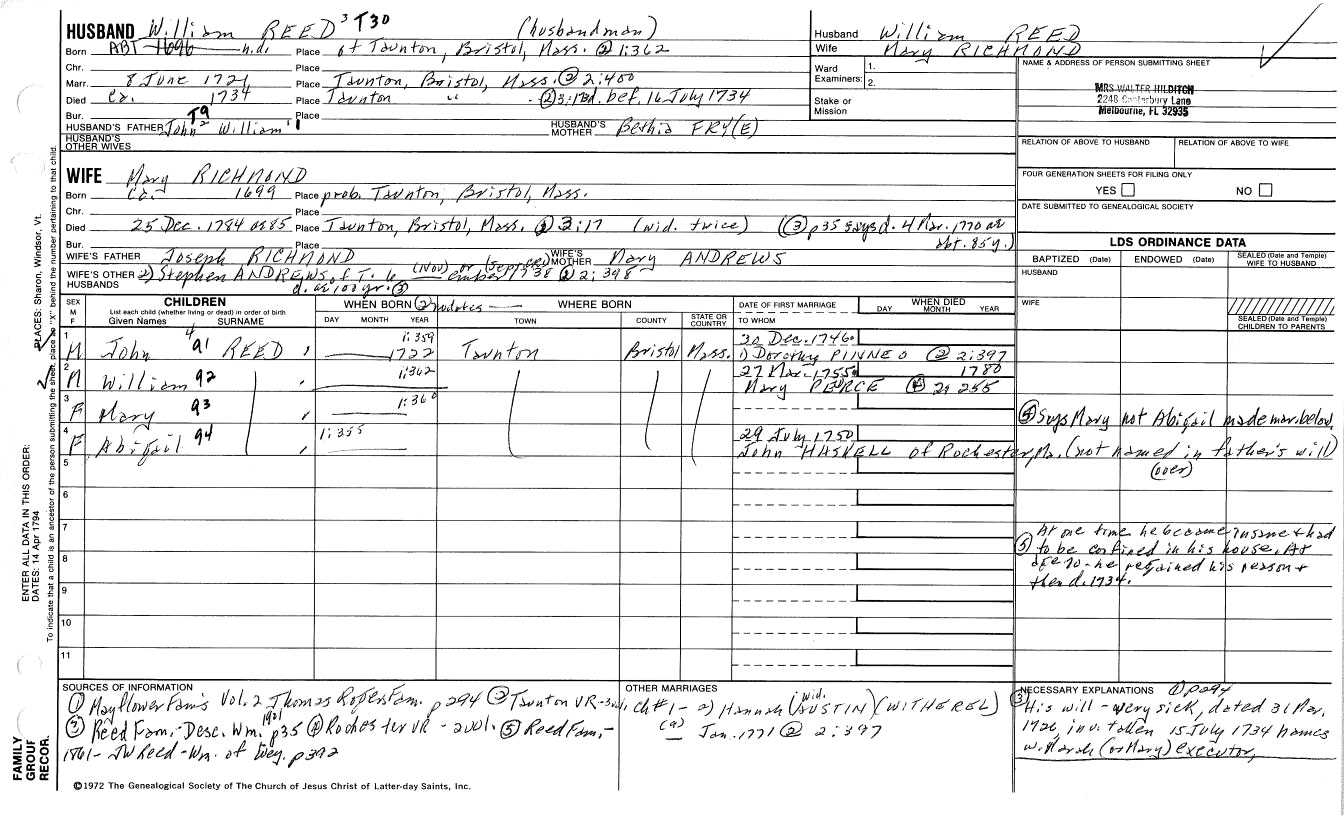 HUSBAND William REED ³ T30 (husbandman)
Born ABT 1696 n.d. Place of Taunton, Bristol, Mass. ② 1:362
Chr. Place
Marr. 8 June 1721 Place Taunton, Bristol, Mass. ② 2:400
Died Ca. 1734 Place Taunton " . ② 3:173d. bef. 16 July 1734
Bur. T9 Place
HUSBAND'S FATHER John ² William ¹ HUSBAND'S MOTHER Bethia FRY(E)
HUSBAND'S OTHER WIVES
WIFE Mary RICHMOND
Born Ca. 1699 Place prob. Taunton, Bristol, Mass.
Chr. Place
Died 25 Dec. 1784 or 85 Place Taunton, Bristol, Mass. ② 3:17 (wid. twice) (③ p 35 says d. 4 Mar. 1770 ae
Bur. Place abt. 85y.)
WIFE'S FATHER Joseph RICHMOND WIFE'S MOTHER Mary ANDREWS
WIFE'S OTHER HUSBANDS 2) Stephen ANDREWS, of T. 6 (Nov) or (Sept. CR) ember 1738 ② 2:398
d. ae 100 yr. ③
Husband William REED
Wife Mary RICHMOND
Ward Examiners: 1.
2.
Stake or Mission
NAME & ADDRESS OF PERSON SUBMITTING SHEET
MRS WALTER HILDITCH
2248 Canterbury Lane
Melbourne, FL 32935
RELATION OF ABOVE TO HUSBAND RELATION OF ABOVE TO WIFE
FOUR GENERATION SHEETS FOR FILING ONLY
YES NO
DATE SUBMITTED TO GENEALOGICAL SOCIETY
LDS ORDINANCE DATA
BAPTIZED (Date) ENDOWED (Date) SEALED (Date and Temple) WIFE TO HUSBAND
HUSBAND
WIFE
SEALED (Date and Temple) CHILDREN TO PARENTS
SEX M F
CHILDREN
List each child (whether living or dead) in order of birth
Given Names SURNAME
WHEN BORN ② no dates
DAY MONTH YEAR
WHERE BORN
TOWN COUNTY STATE OR COUNTRY
DATE OF FIRST MARRIAGE
TO WHOM
WHEN DIED
DAY MONTH YEAR
1 M John ⁴ 91 REED, 1:359 1722 Taunton Bristol Mass. 30 Dec. 1746
1) Dorothy PINNEO ② 2:397
2 M William 92 1:362 27 Mar. 1755 1780
Mary PEIRCE ④ 2: 255
3 F Mary 93 1:360
4 F Abigail 94 1:355 29 July 1750
John HASKELL of Rochester, Ma. (not named in father's will)
(over)
④ Says Mary not Abigail made mar. below
5
6
7
8
9
10
11
⑤ At one time he became insane & had
to be confined in his house. At
age 70 - he regained his reason &
then d. 1734.
SOURCES OF INFORMATION
① Mayflower Fam's Vol. 2 Thomas Rogers Fam. p 294 ② Taunton VR
③ Reed Fam.- Desc. Wm. 1901 p35 ④ Rochester VR - 2 vol. ⑤ Reed Fam.-
1861- JW Reed - Wm. of Wey. p 392
OTHER MARRIAGES
ch #1 - 2) Hannah (AUSTIN) wid. (WITHEREL)
(a) Jan. 1771 ② 2:397
NECESSARY EXPLANATIONS ① p294
③ His will - very sick, dated 31 Mar.
1726, inv. taken 15 July 1734 names
w. Marah (or Mary) executor,
©1972 The Genealogical Society of The Church of Jesus Christ of Latter-day Saints, Inc.
ENTER ALL DATA IN THIS ORDER:
DATES: 14 Apr 1794
PLACES: Sharon, Windsor, Vt.
To indicate that a child is an ancestor of the person submitting the sheet, place an "X" behind the number pertaining to that child.
FAMILY
GROUP
RECOR.